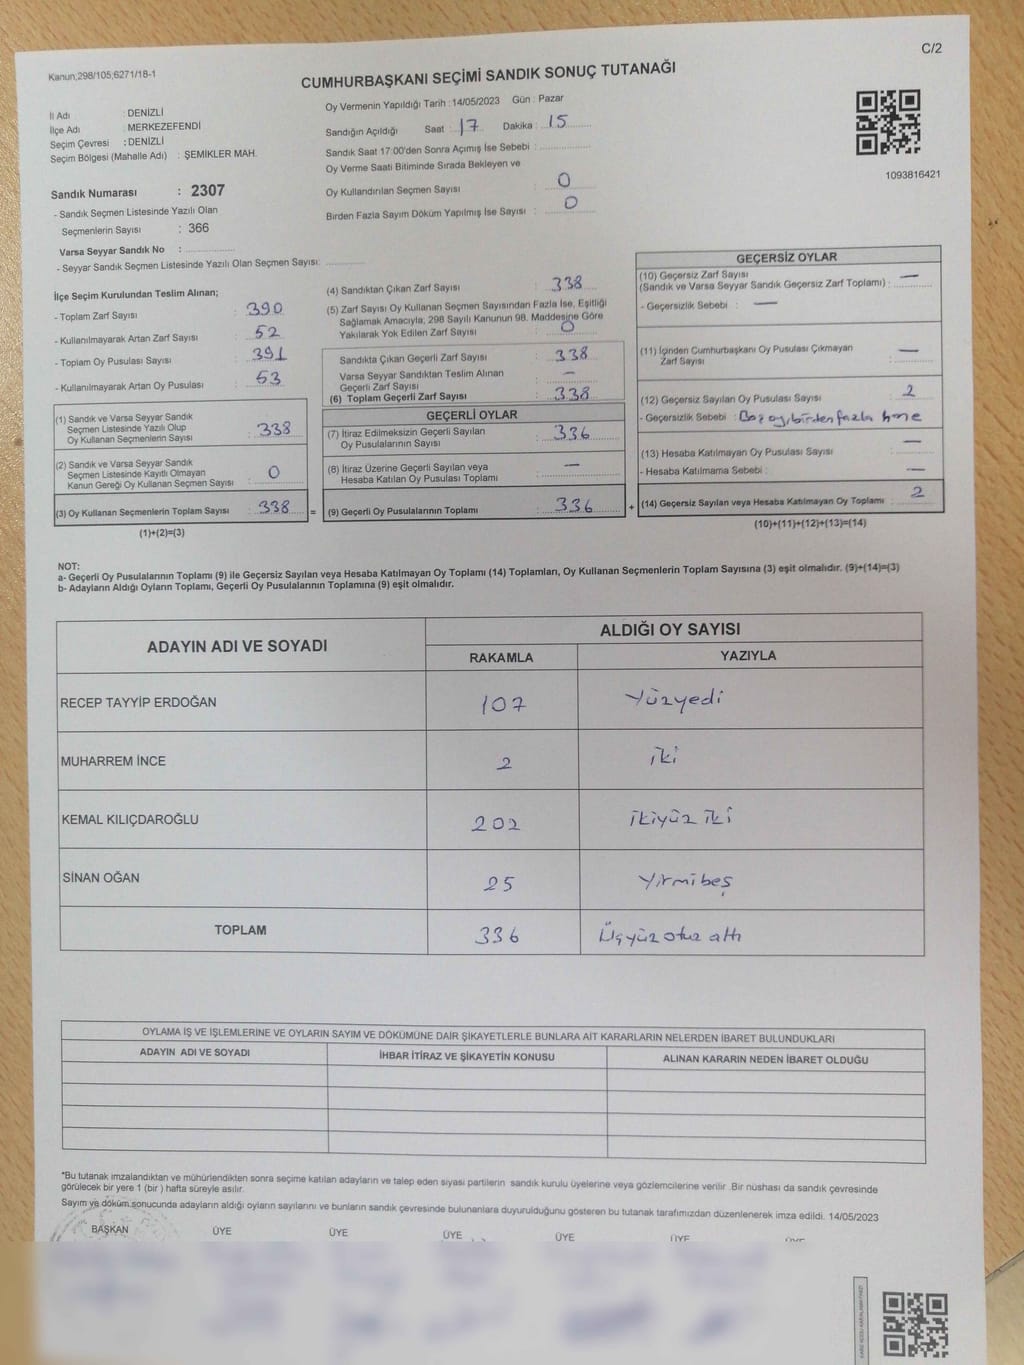 C/2
Kanun;298/105;6271/18-1
CUMHURBAŞKANI SEÇİMİ SANDIK SONUÇ TUTANAĞI
İl Adı : DENİZLİ
İlçe Adı : MERKEZEFENDİ
Seçim Çevresi : DENİZLİ
Seçim Bölgesi (Mahalle Adı) : ŞEMİKLER MAH.
Sandık Numarası : 2307
- Sandık Seçmen Listesinde Yazılı Olan
Seçmenlerin Sayısı : 366
Varsa Seyyar Sandık No :
- Seyyar Sandık Seçmen Listesinde Yazılı Olan Seçmen Sayısı:
Oy Vermenin Yapıldığı Tarih : 14/05/2023 Gün : Pazar
Sandığın Açıldığı Saat : 17 Dakika : 15
Sandık Saat 17:00'den Sonra Açımış İse Sebebi :
Oy Verme Saati Bitiminde Sırada Bekleyen ve
Oy Kullandırılan Seçmen Sayısı : 0
Birden Fazla Sayım Döküm Yapılmış İse Sayısı : 0
1093816421
İlçe Seçim Kurulundan Teslim Alınan;
- Toplam Zarf Sayısı : 390
- Kullanılmayarak Artan Zarf Sayısı : 52
- Toplam Oy Pusulası Sayısı : 391
- Kullanılmayarak Artan Oy Pusulası : 53
(1) Sandık ve Varsa Seyyar Sandık
Seçmen Listesinde Yazılı Olup
Oy Kullanan Seçmenlerin Sayısı : 338
(2) Sandık ve Varsa Seyyar Sandık
Seçmen Listesinde Kayıtlı Olmayan
Kanun Gereği Oy Kullanan Seçmen Sayısı : 0
(3) Oy Kullanan Seçmenlerin Toplam Sayısı : 338 =
(1)+(2)=(3)
(4) Sandıktan Çıkan Zarf Sayısı : 338
(5) Zarf Sayısı Oy Kullanan Seçmen Sayısından Fazla İse, Eşitliği
Sağlamak Amacıyla; 298 Sayılı Kanunun 98. Maddesine Göre
Yakılarak Yok Edilen Zarf Sayısı : 0
Sandıkta Çıkan Geçerli Zarf Sayısı : 338
Varsa Seyyar Sandıktan Teslim Alınan
Geçerli Zarf Sayısı : —
(6) Toplam Geçerli Zarf Sayısı : 338
GEÇERLİ OYLAR
(7) İtiraz Edilmeksizin Geçerli Sayılan
Oy Pusulalarının Sayısı : 336
(8) İtiraz Üzerine Geçerli Sayılan veya
Hesaba Katılan Oy Pusulası Toplamı : —
(9) Geçerli Oy Pusulalarının Toplamı : 336 +
GEÇERSİZ OYLAR
(10) Geçersiz Zarf Sayısı
(Sandık ve Varsa Seyyar Sandık Geçersiz Zarf Toplamı) : —
- Geçersizlik Sebebi : —
(11) İçinden Cumhurbaşkanı Oy Pusulası Çıkmayan
Zarf Sayısı : —
(12) Geçersiz Sayılan Oy Pusulası Sayısı : 2
- Geçersizlik Sebebi : Boş oy, birden fazla hane
(13) Hesaba Katılmayan Oy Pusulası Sayısı : —
- Hesaba Katılmama Sebebi : —
(14) Geçersiz Sayılan veya Hesaba Katılmayan Oy Toplamı : 2
(10)+(11)+(12)+(13)=(14)
NOT:
a- Geçerli Oy Pusulalarının Toplamı (9) ile Geçersiz Sayılan veya Hesaba Katılmayan Oy Toplamı (14) Toplamları, Oy Kullanan Seçmenlerin Toplam Sayısına (3) eşit olmalıdır. (9)+(14)=(3)
b- Adayların Aldığı Oyların Toplamı, Geçerli Oy Pusulalarının Toplamına (9) eşit olmalıdır.
ADAYIN ADI VE SOYADI ALDIĞI OY SAYISI
RAKAMLA YAZIYLA
RECEP TAYYİP ERDOĞAN 107 Yüzyedi
MUHARREM İNCE 2 iki
KEMAL KILIÇDAROĞLU 202 ikiyüz iki
SİNAN OĞAN 25 Yirmibeş
TOPLAM 336 Üçyüz otuz altı
OYLAMA İŞ VE İŞLEMLERİNE VE OYLARIN SAYIM VE DÖKÜMÜNE DAİR ŞİKAYETLERLE BUNLARA AİT KARARLARIN NELERDEN İBARET BULUNDUKLARI
ADAYIN ADI VE SOYADI İHBAR İTİRAZ VE ŞİKAYETİN KONUSU ALINAN KARARIN NEDEN İBARET OLDUĞU
*Bu tutanak imzalandıktan ve mühürlendikten sonra seçime katılan adayların ve talep eden siyasi partilerin sandık kurulu üyelerine veya gözlemcilerine verilir .Bir nüshası da sandık çevresinde
görülecek bir yere 1 (bir ) hafta süreyle asılır.
Sayım ve döküm sonucunda adayların aldığı oyların sayılarını ve bunların sandık çevresinde bulunanlara duyurulduğunu gösteren bu tutanak tarafımızdan düzenlenerek imza edildi. 14/05/2023
BAŞKAN ÜYE ÜYE ÜYE ÜYE ÜYE ÜYE